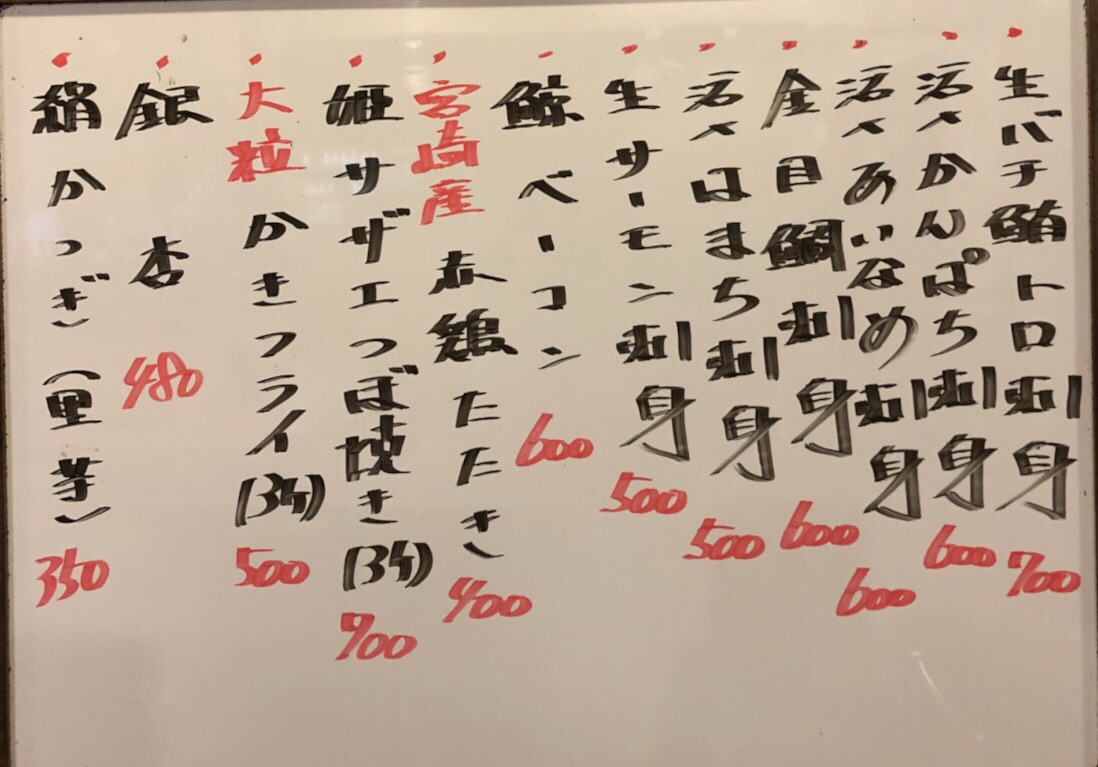 ・生バチ鮪トロ刺身 700
・活〆かんぱち刺身 600
・活〆あいなめ刺身 600
・金目鯛刺身 600
・活〆はまち刺身 500
・生サーモン刺身 500
・鯨ベーコン 600
・宮崎産赤鶏たたき 400
・姫サザエつぼ焼き(3ヶ) 700
・大粒かきフライ(3ヶ) 500
・銀杏 480
・絹かつぎ(里芋) 350